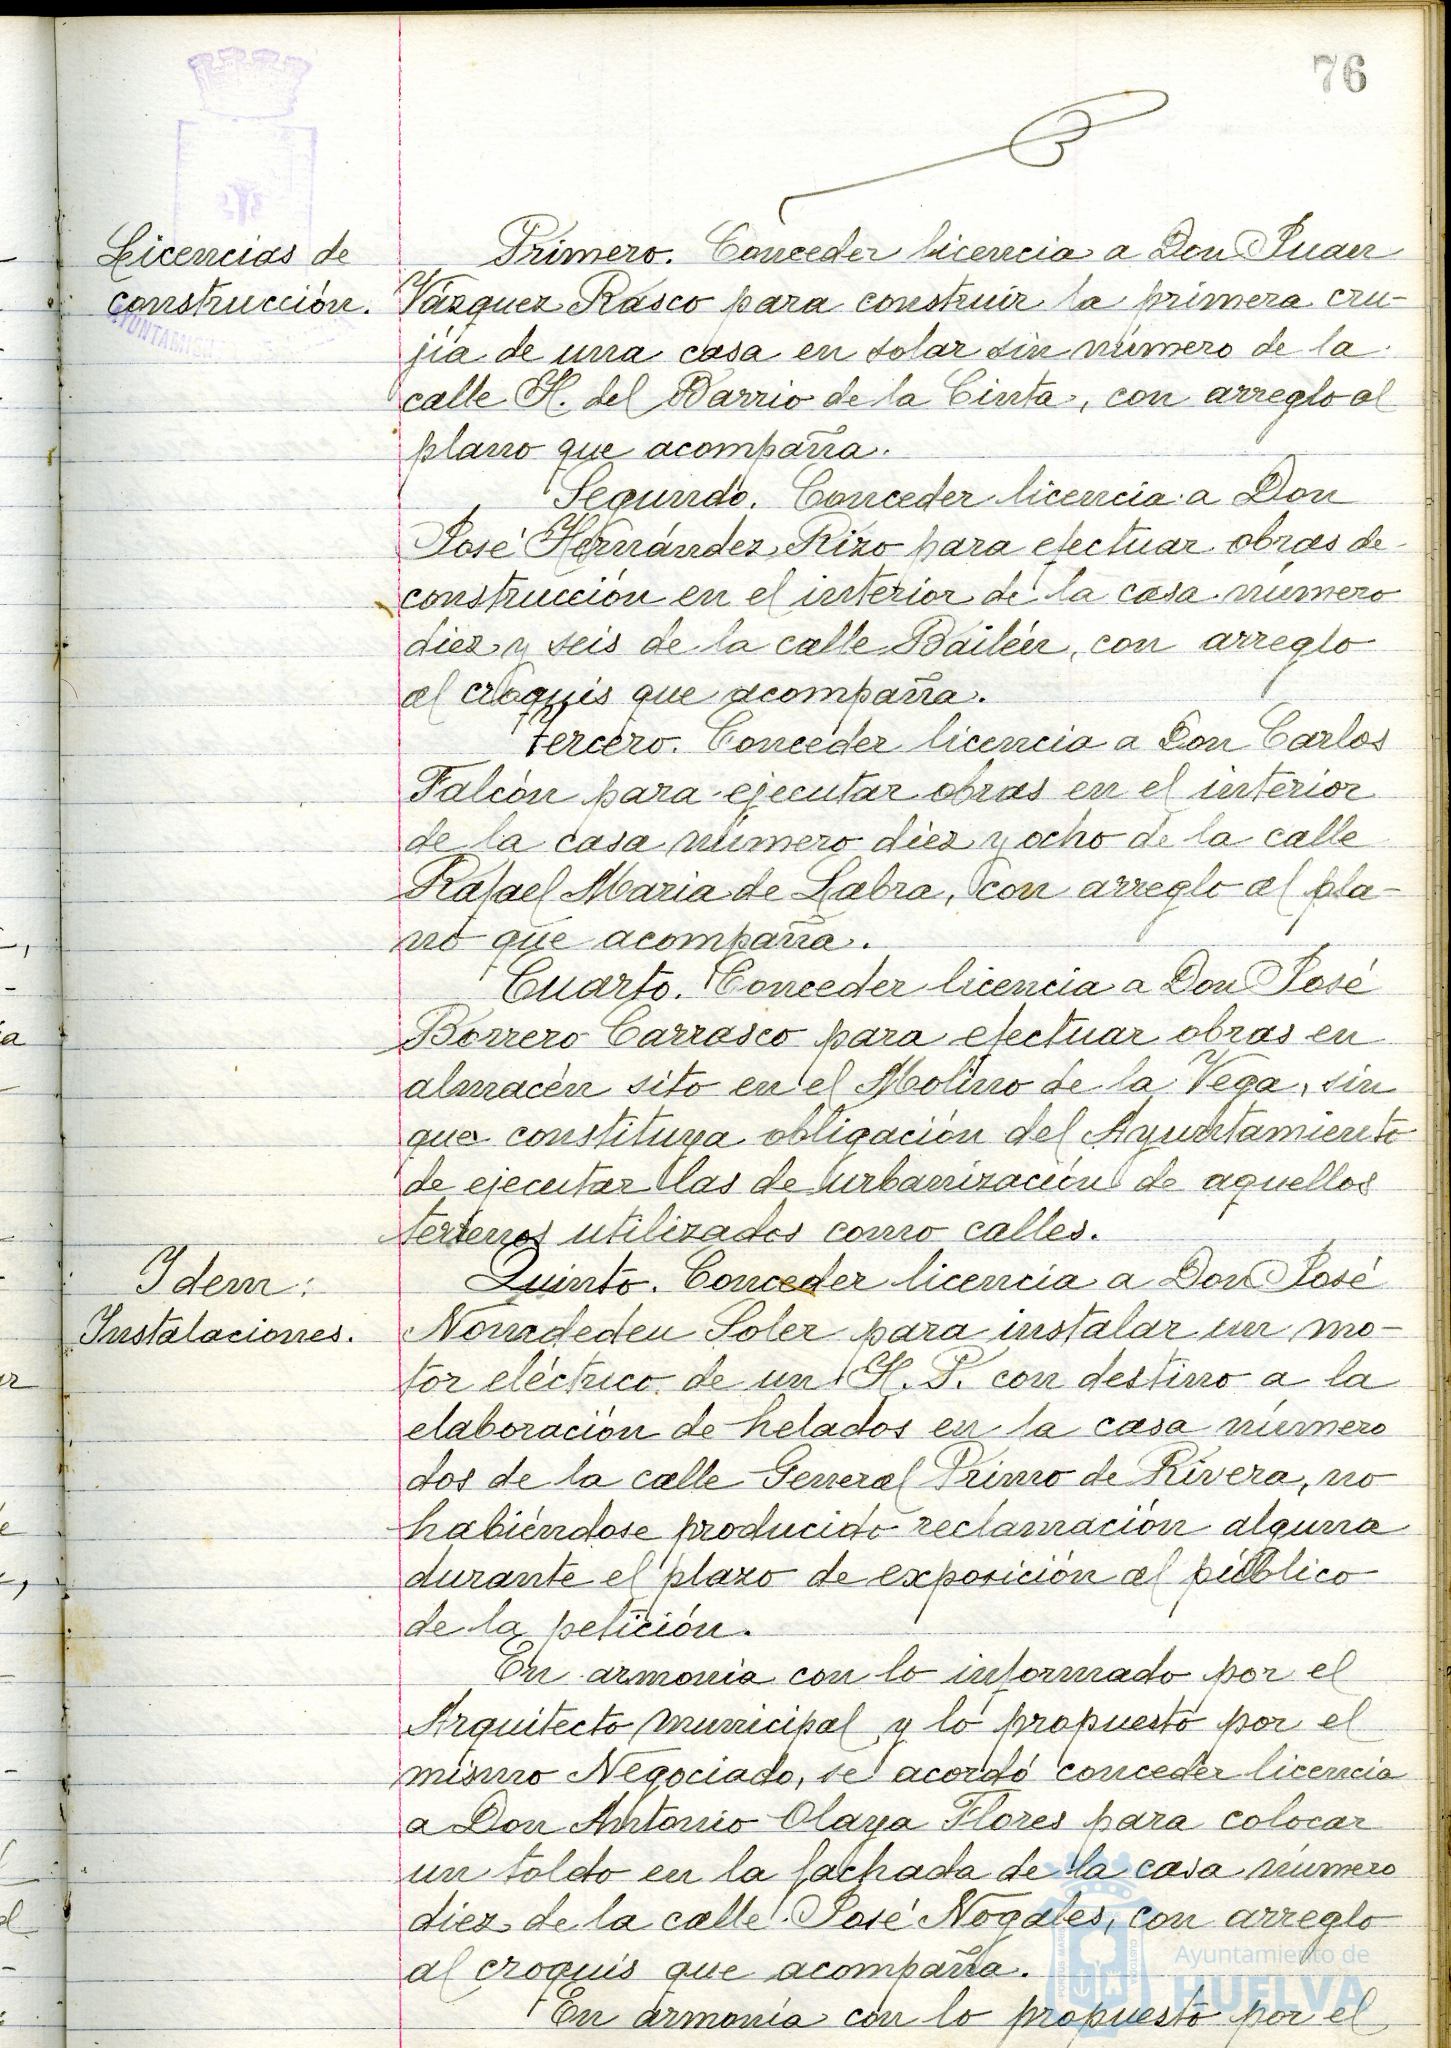 76
Licencias de
construcción.
Primero. Conceder licencia a Don Juan
Vázquez Rasco para construir la primera cru-
jía de una casa en solar sin número de la
calle H. del Barrio de la Cinta, con arreglo al
plano que acompaña.
Segundo. Conceder licencia a Don
José Hernández Rizo para efectuar obras de
construcción en el interior de la casa número
diez y seis de la calle Bailén, con arreglo
al croquis que acompaña.
Tercero. Conceder licencia a Don Carlos
Falcón para ejecutar obras en el interior
de la casa número diez y ocho de la calle
Rafael Maria de Labra, con arreglo al pla-
no que acompaña.
Cuarto. Conceder licencia a Don José
Borrero Carrasco para efectuar obras en
almacén sito en el Molino de la Vega, sin
que constituya obligación del Ayuntamiento
de ejecutar las de urbanización de aquellos
terrenos utilizados como calles.
Idem:
Instalaciones.
Quinto. Conceder licencia a Don José
Nomdedeu Soler para instalar un mo-
tor eléctrico de un H.P. con destino a la
elaboración de helados en la casa número
dos de la calle General Primo de Rivera, no
habiéndose producido reclamación alguna
durante el plazo de exposición al público
de la petición.
En armonia con lo informado por el
Arquitecto municipal y lo propuesto por el
mismo Negociado, se acordó conceder licencia
a Don Antonio Olaya Flores para colocar
un toldo en la fachada de la casa número
diez de la calle José Nogales, con arreglo
al croquis que acompaña.
En armonía con lo propuesto por el
Ayuntamiento de
HUELVA